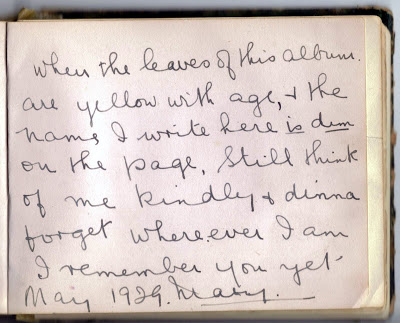 When the leaves of this album.
are yellow with age, & the
name, I write here is dim
on the page, Still think
of me kindly & dinna
forget where.ever I am
I remember you yet.
May 1929. Mary.